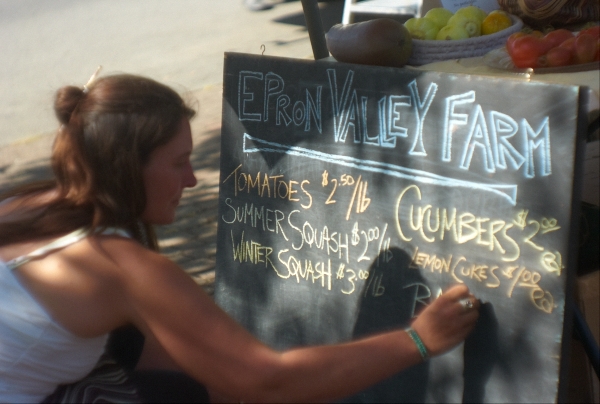 EPRON VALLEY FARM
TOMATOES $2.50/lb
SUMMER SQUASH $2.00/lb
WINTER SQUASH $3.00/lb
CUCUMBERS $2.00
LEMON CUKES $1.00